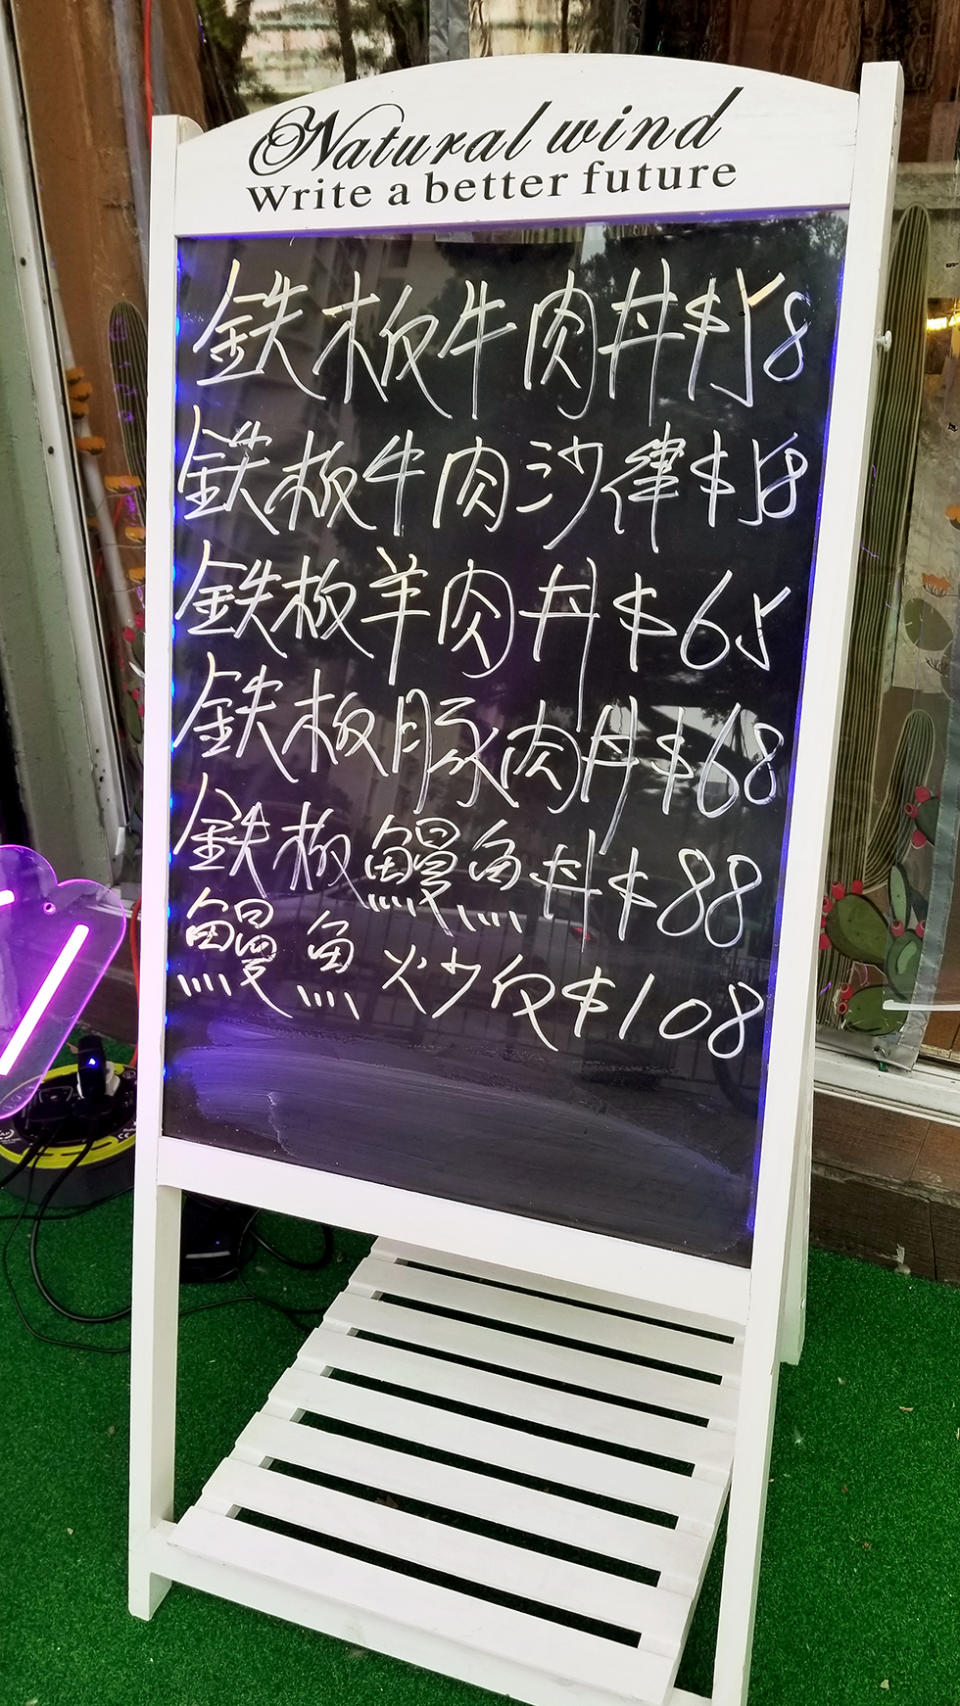 Natural wind
Write a better future
鉄板牛肉丼$58
鉄板牛肉沙律$58
鉄板羊肉丼$65
鉄板豚肉丼$68
鉄板鰻魚丼$88
鰻魚炒飯$108